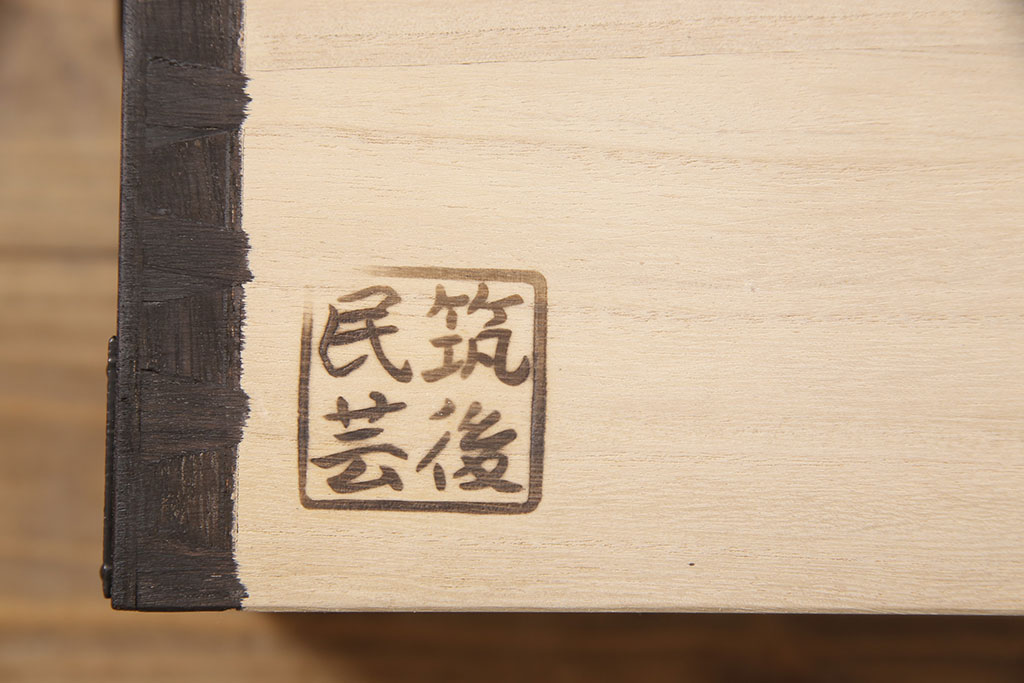 筑後
民芸